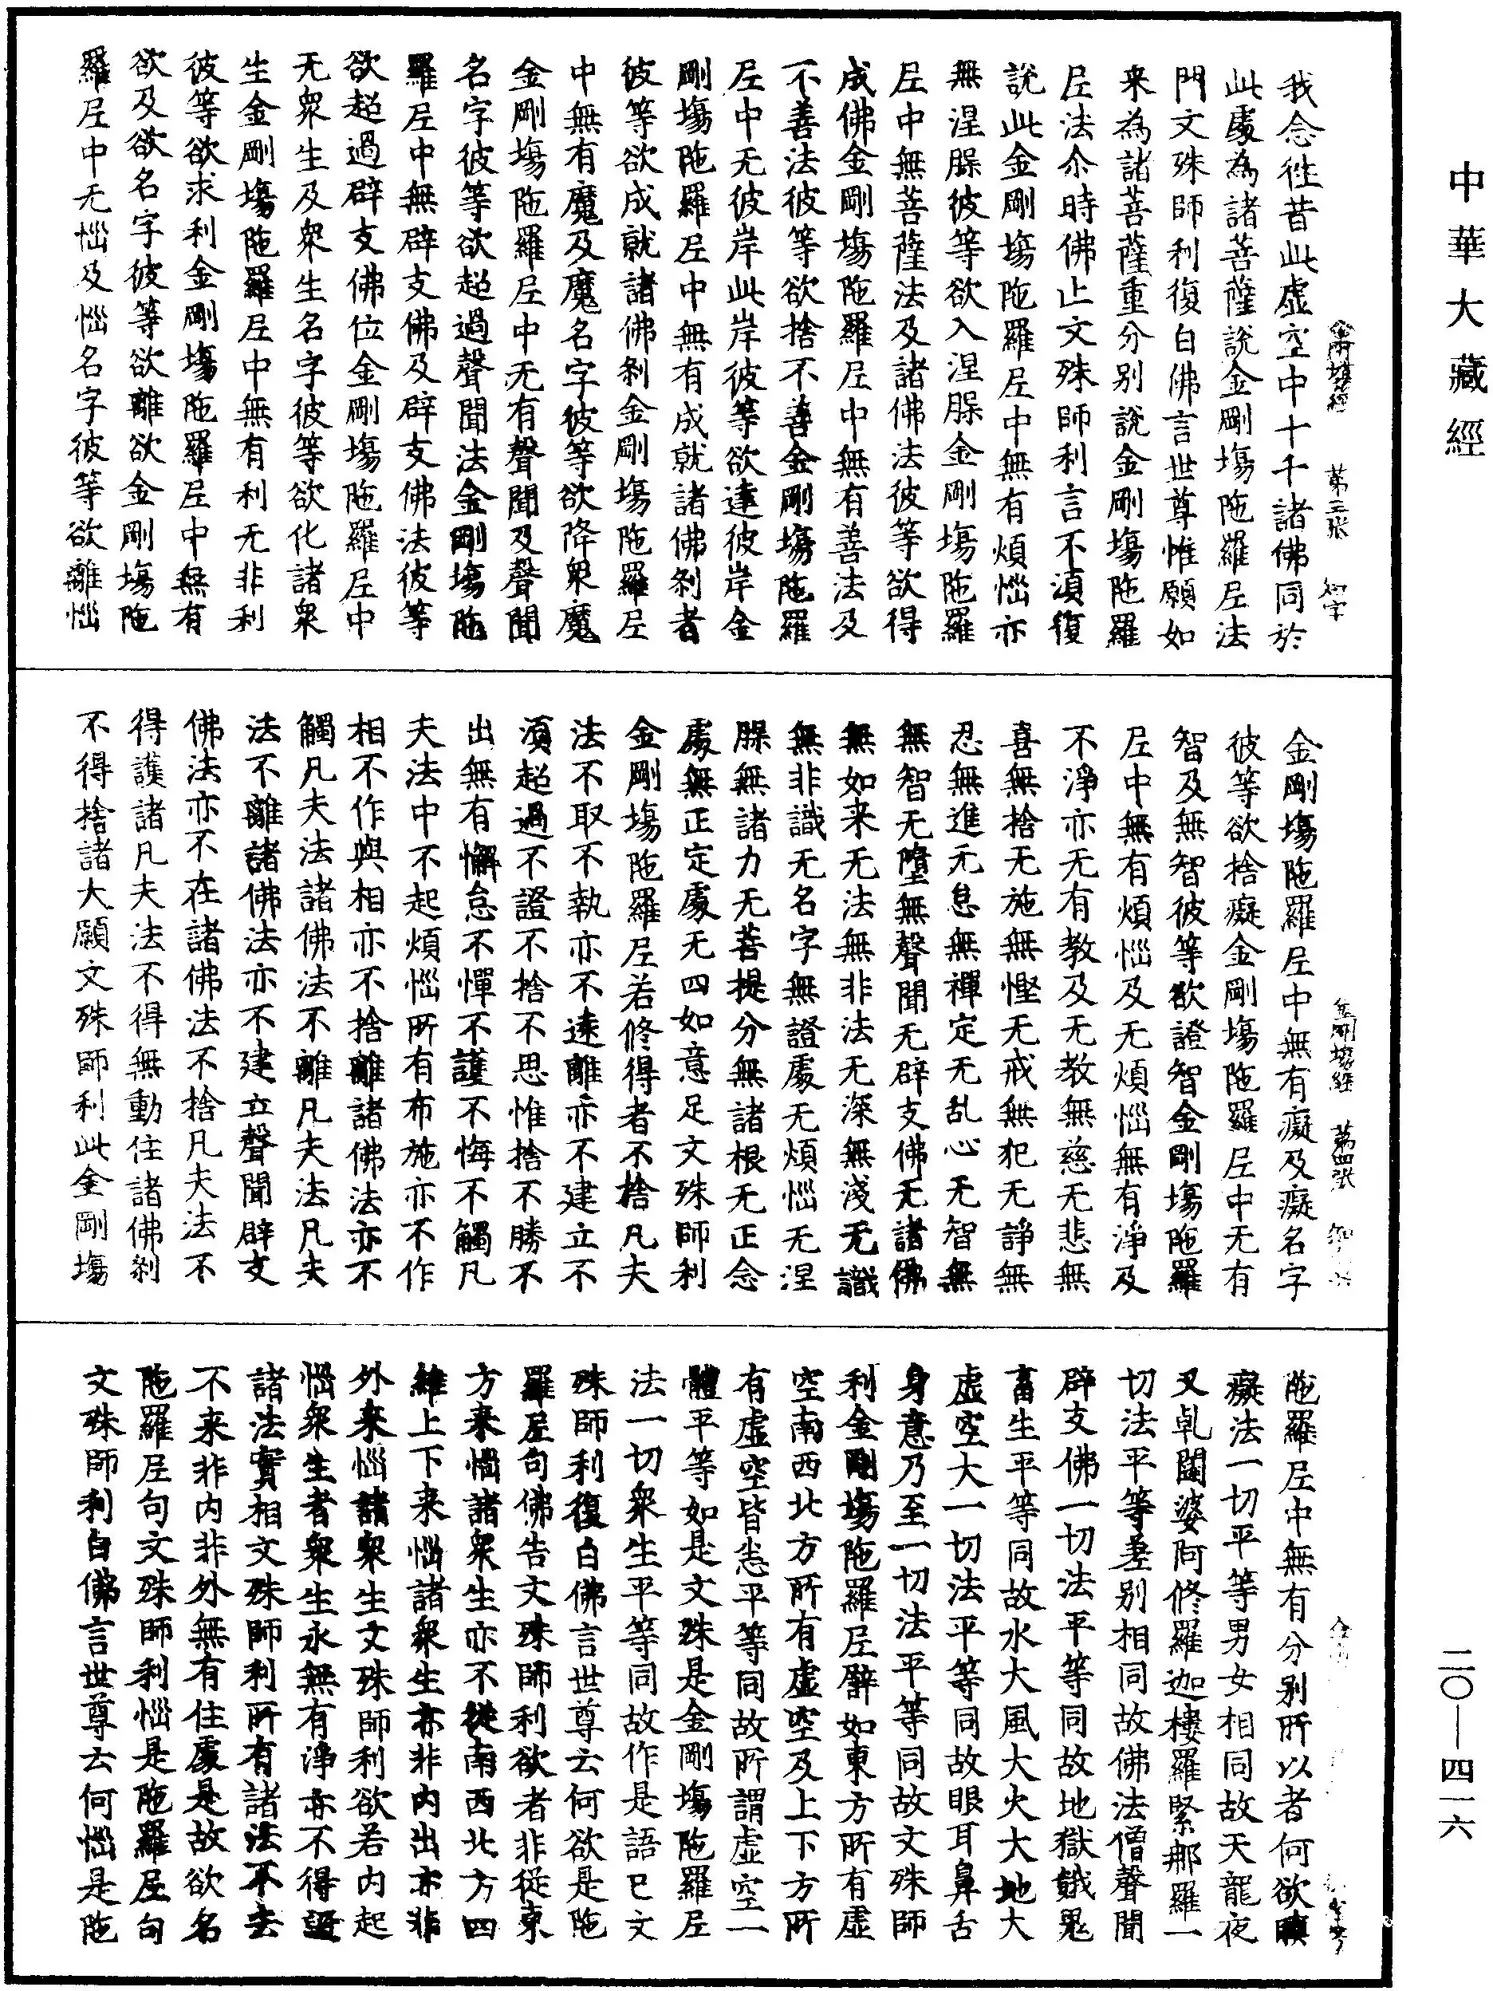 中華大藏經
金剛塲經 第三张 知字
我念往昔此虚空中十千諸佛同於
此處為諸菩薩說金剛塲陁羅尼法
門文殊師利復白佛言世尊惟願如
来為諸菩薩重分別說金剛塲陁羅
尼法尒時佛止文殊師利言不湏復
說此金剛塲陁羅尼中無有煩惱亦
無涅脲彼等欲入涅脲金剛塲陁羅
尼中無菩薩法及諸佛法彼等欲得
成佛金剛塲陁羅尼中無有善法及
不善法彼等欲捨不善金剛塲陁羅
尼中无彼岸此岸彼等欲達彼岸金
剛塲陁羅尼中無有成就諸佛刹者
彼等欲成就諸佛刹金剛塲陁羅尼
中無有魔及魔名字彼等欲降衆魔
金剛塲陁羅尼中无有聲聞及聲聞
名字彼等欲超過聲聞法金剛塲陁
羅尼中無辟支佛及辟支佛法彼等
欲超過辟支佛位金剛塲陁羅尼中
无衆生及衆生名字彼等欲化諸衆
生金剛塲陁羅尼中無有利无非利
彼等欲求利金剛塲陁羅尼中無有
欲及欲名字彼等欲離欲金剛塲陁
羅尼中无惱及惱名字彼等欲離惱
金剛塲經 第四张
金剛塲陁羅尼中無有癡及癡名字
彼等欲捨癡金剛塲陁羅尼中无有
智及無智彼等欲證智金剛塲陁羅
尼中無有煩惱及无煩惱無有淨及
不淨亦无有教及无教無慈无悲無
喜無捨无施無慳无戒無犯无諍無
忍無進无怠無禪定无乱心无智無
無智无墮無聲聞无辟支佛无諸佛
無如来无法無非法无深無淺无識
無非識无名字無證處无煩惱无涅
脲無諸力无菩提分無諸根无正念
處無正定處无四如意足文殊師利
金剛塲陁羅尼若修得者不捨凡夫
法不取不執亦不遠離亦不建立不
湏超過不證不捨不思惟捨不勝不
出無有懈怠不憚不護不悔不觸凡
夫法中不起煩惱所有布施亦不作
相不作與相亦不捨離諸佛法亦不
觸凡夫法諸佛法不離凡夫法凡夫
法不離諸佛法亦不建立聲聞辟支
佛法亦不在諸佛法不捨凡夫法不
得護諸凡夫法不得無動住諸佛刹
不得捨諸大願文殊師利此金剛塲
陁羅尼中無有分别所以者何欲瞋
癡法一切平等男女相同故天龍夜
叉乹闥婆阿修羅迦樓羅緊那羅一
切法平等差别相同故佛法僧聲聞
辟支佛一切法平等同故地獄餓鬼
畜生平等同故水大風大火大地大
虚空大一切法平等同故眼耳鼻舌
身意乃至一切法平等同故文殊師
利金剛塲陁羅尼辟如東方所有虚
空南西北方所有虚空及上下方所
有虚空皆悉平等同故所謂虚空一
體平等如是文殊是金剛塲陁羅尼
法一切衆生平等同故作是語已文
殊師利復白佛言世尊云何欲是陁
羅尼句佛告文殊師利欲者非從東
方来惱諸衆生亦不從南西北方四
維上下来惱諸衆生亦非内出亦非
外来惱諸衆生文殊師利欲若内起
惱衆生者衆生永無有淨亦不得證
諸法實相文殊師利所有諸法不去
不来非内非外無有住處是故欲名
陁羅尼句文殊師利惱是陁羅尼句
文殊師利白佛言世尊云何惱是陁
二〇—四一六